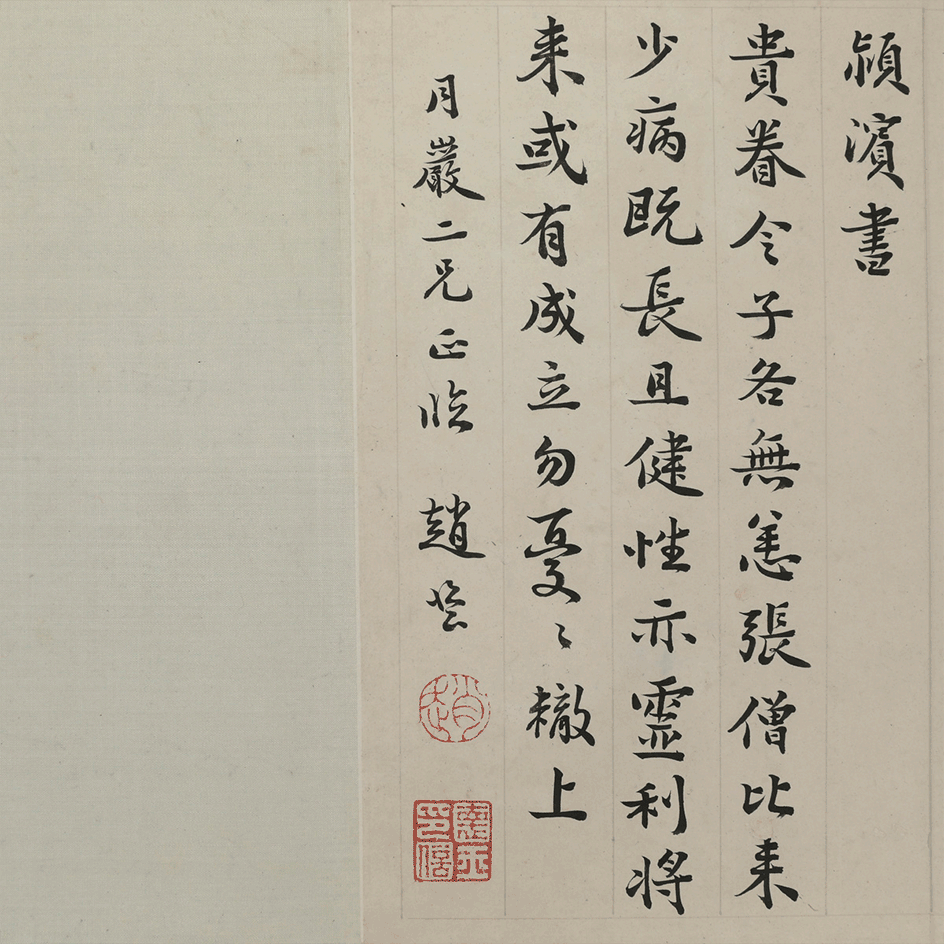 潁濱書
貴眷令子各無恙張僧比来
少病既長且健性亦靈利將
来或有成立勿憂〻轍上
月巖二兄正臨 趙